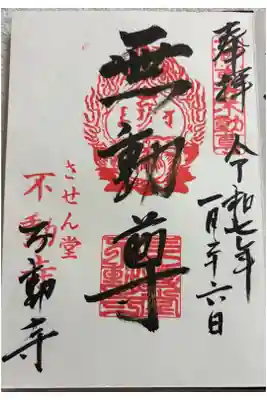 奉拝
令和七年
一月二十六日
無動尊
させん堂
不動
不動寺